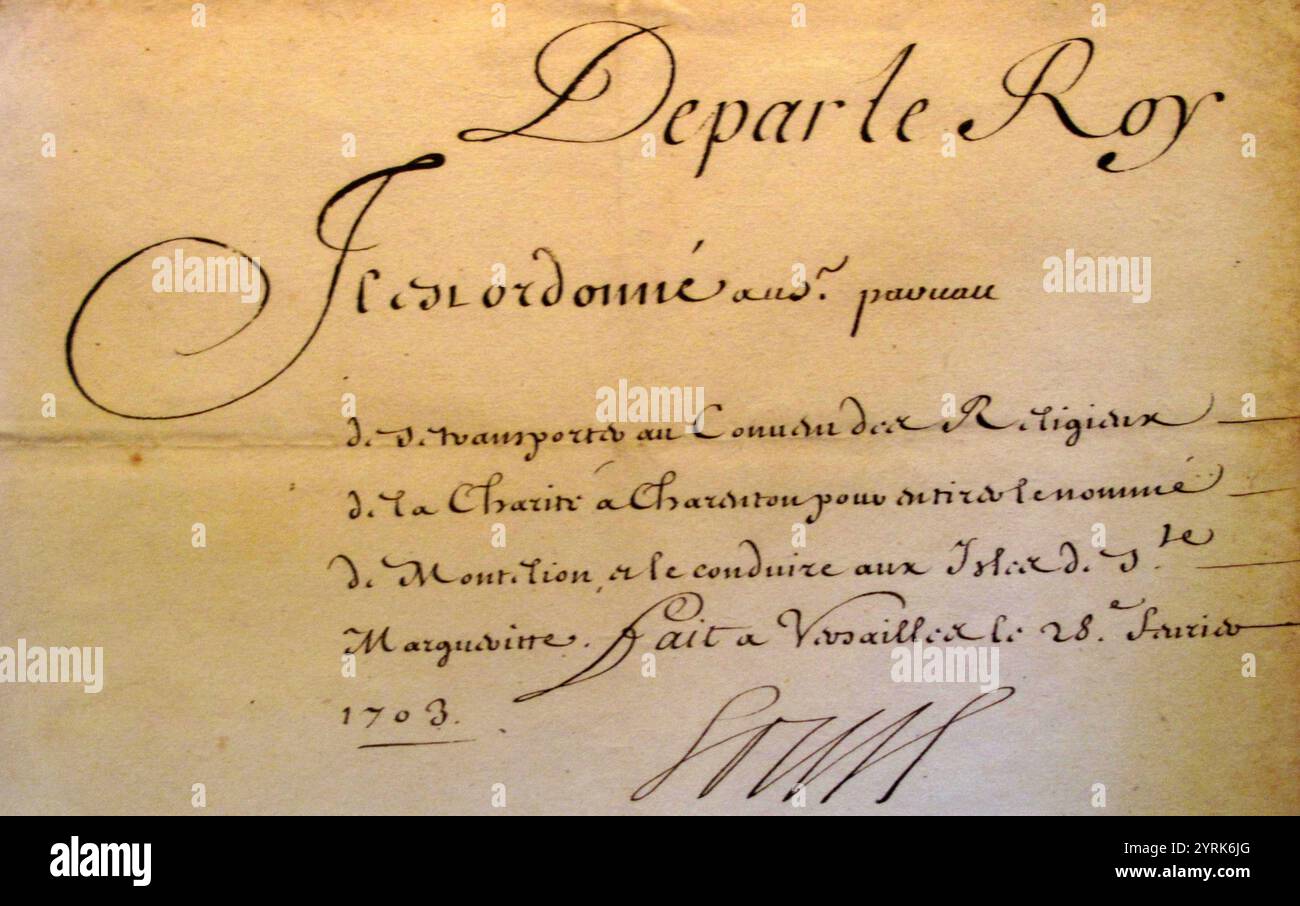 De par le Roy
Il est ordonné au Sr.
de se transporter au Convent des Religieux
de la Charité à Charenton pour en tirer le nommé
de Montelion, et le conduire aux Isles de Ste
Margueritte. fait a Versailles le 28.e fevrier
1703.
Louis
alamy
Image ID: 2YRK6JG
www.alamy.com